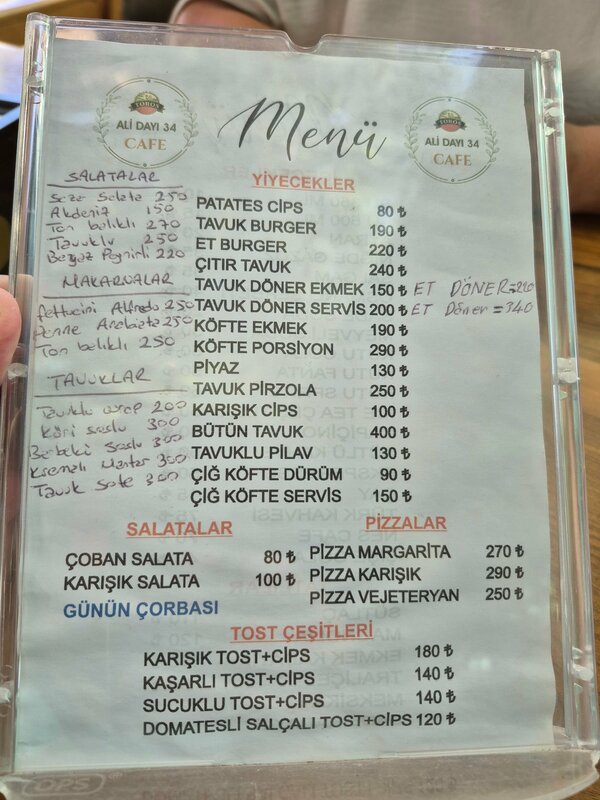 TOROS
ALİ DAYI 34
CAFE
Menü
TOROS
ALİ DAYI 34
CAFE
SALATALAR
Seza Salata 250
Akdeniz 150
Ton balıklı 270
Tavuklu 250
Beyaz Peynirli 220
MAKARNALAR
fettucini Alfredo 250
Penne Arabiata 250
Ton balıklı 250
TAVUKLAR
Tavuklu wrap 200
Köri soslu 300
Barbekü Soslu 300
Kremalı Mantar 300
Tavuk Sote 300
YİYECEKLER
PATATES CİPS 80 ₺
TAVUK BURGER 190 ₺
ET BURGER 220 ₺
ÇITIR TAVUK 240 ₺
TAVUK DÖNER EKMEK 150 ₺ ET DÖNER=220
TAVUK DÖNER SERVİS 200 ₺ ET Döner =340
KÖFTE EKMEK 190 ₺
KÖFTE PORSİYON 290 ₺
PİYAZ 130 ₺
TAVUK PİRZOLA 250 ₺
KARIŞIK CİPS 100 ₺
BÜTÜN TAVUK 400 ₺
TAVUKLU PİLAV 130 ₺
ÇİĞ KÖFTE DÜRÜM 90 ₺
ÇİĞ KÖFTE SERVİS 150 ₺
SALATALAR
ÇOBAN SALATA 80 ₺
KARIŞIK SALATA 100 ₺
GÜNÜN ÇORBASI
PİZZALAR
PİZZA MARGARİTA 270 ₺
PİZZA KARIŞIK 290 ₺
PİZZA VEJETERYAN 250 ₺
TOST ÇEŞİTLERİ
KARIŞIK TOST+CİPS 180 ₺
KAŞARLI TOST+CİPS 140 ₺
SUCUKLU TOST+CİPS 140 ₺
DOMATESLİ SALÇALI TOST+CİPS 120 ₺